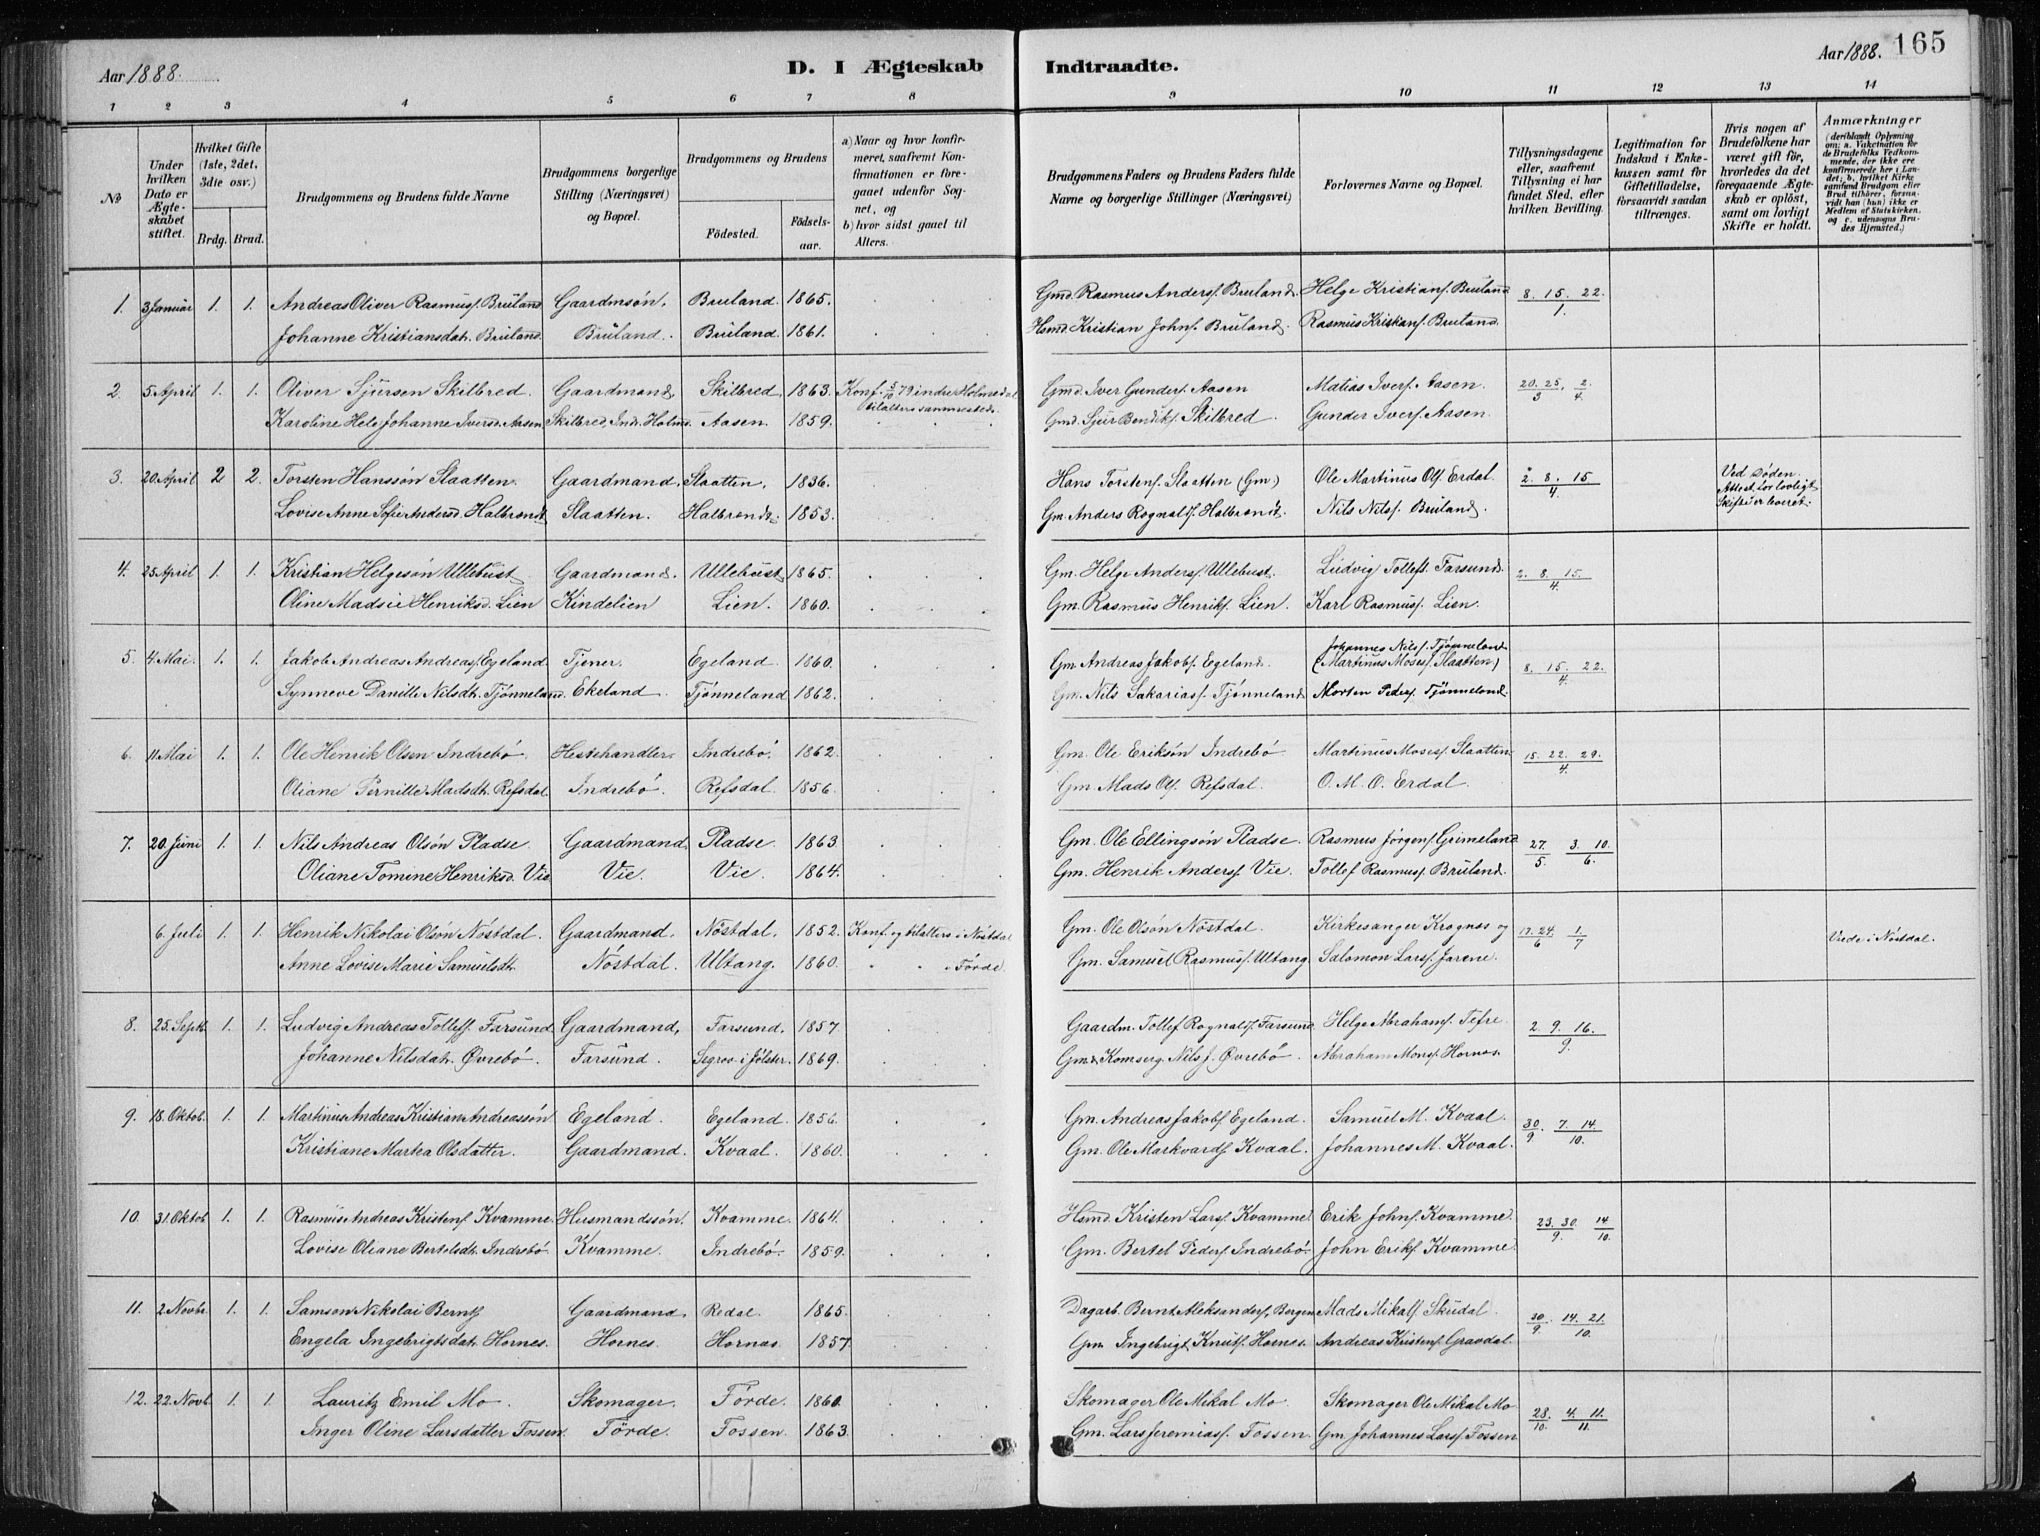 Aar 1888.
D. I Ægteskab
Indtraadte.
Aar 1888. 165
1 2 3 4 5 6 7 8 9 10 11 12 13 14
No
Under hvilken Dato er Ægteskabet stiftet.
Hvilket Gifte (1ste, 2det, 3die osv.)
Brdg. Brud.
Brudgommens og Brudens fulde Navne
Brudgommens borgerlige Stilling (Næringsvei) og Bopæl.
Brudgommens og Brudens
Fødested.
Fødselsaar.
a) Naar og hvor konfirmeret, saafremt Konfirmationen er foregaaet udenfor Sognet, og
b) hvor sidst gaaet til Alters.
Brudgommens Faders og Brudens Faders fulde Navne og borgerlige Stillinger (Næringsvei)
Forlovernes Navne og Bopæl.
Tillysningsdagene eller, saafremt Tillysning ei har fundet Sted, efter hvilken Bevilling.
Legitimation for Indskud i Enkekassen samt for Giftetilladelse, forsaavidt saadan tiltrænges.
Hvis nogen af Brudefolkene har været gift før, hvorledes da det foregaaende Ægteskab er opløst, samt om lovligt Skifte er holdt.
Anmærkninger (deriblandt Oplysning om: a. Vaccination for de Brudefolks Vedkommende, der ikke ere konfirmerede her i Landet; b. hvilket Kirkesamfund Brudgom eller Brud tilhører, forsaavidt han (hun) ikke er Medlem af Statskirken, og c. udensogns Brudes Hjemsted.)
1. 3 Januar 1. 1. Andreas Oliver Rasmuss. Bruland Gaardmsön. Bruland. 1865. Gmd. Rasmus Anders. Bruland. Helge Kristians. Bruland 8. 15. 22.
Johanne Kristiansdatt. Bruland Bruland. Bruland. 1861. Hsmd. Kristian Johns. Bruland. Rasmus Kristians. Bruland. 1.
2. 5 April 1. 1. Oliver Sjursen Skilbred. Gaardmand, Skilbred, 1863. Konf. 5/10 79 indre Holmedal Gmd. Iver Gunders. Aasen Matias Ivers. Aasen. 20. 25. 2.
Karoline Hele Johanne Iversd. Aasen, Skilbred, Ind. Holmd. Aasen. 1859. tilalters sammesteds. Gmd. Sjur Bendiks. Skilbred Gunder Ivers. Aasen. 3 4.
3. 20 April 2 2. Torsten Hanssön Slaatten. Gaardmand, Slaatten. 1836. Hans Torstens. Slaatten (Gm.) Ole Martinus Ols. Erdal 2. 8. 15 Ved Døden.
Lovise Anne Sofie Andersd. Halbrendt Slaatten. Halbrendt. 1853. Gm. Anders Rognalds. Halbrendt. Nils Nils. Bruland. 4. Attest for lovligt Skifte er
4. 25 April 1. 1. Kristian Helgesön Ullebust Gaardmand. Ullebust 1865. Gm. Helge Anders. Ullebust. Ludvig Tollefs. Farsund. 2. 8. 15.
Oline Madsie Henriksd. Lien Kindelien Lien. 1860. Gm. Rasmus Henriks. Lien. Karl Rasmus. Lien. 4
5. 4. Mai. 1. 1. Jakob Andreas Andreas. Egeland. Tjener. Egeland 1860. Gm. Andreas Jakobs. Egeland. Johannes Nils. Tjønneland (Martinus Moses. Slaatten) 8. 15. 22.
Synneve Danille Nilsdtr. Tjønneland. Ekeland. Tjønneland 1862. Gm. Nils Sakarias. Tjønneland Morten Peders. Tjønneland. 4.
6. 11. Mai 1. 1. Ole Henrik Olsen Indrebö. Hestehandler. Indrebö. 1862. Gm. Ole Eriksön Indrebö. Martinus Moses. Slaatten. 15. 22. 29.
Oliane Pernille Madsdtr. Refsdal. Indrebö. Refsdal. 1856. Gm. Mads Ols. Refsdal. O. M. O. Erdal. 4.
7. 20. Juni 1. 1. Nils Andreas Olsön Pladse. Gaardmand. Pladse 1863. Gm. Ole Ellingsön Pladse. Rasmus Jørgens. Grimeland. 27. 3. 10.
Oliane Tomine Henriksd. Vie Vie. Vie. 1864. Gm. Henrik Anders. Vie. Tollef Rasmus. Bruland. 5 6.
6. Juli 1. 1. Henrik Nikolai Olsön Nöstdal. Gaardmand. Nöstdal. 1852. Konf. og tilalters i Nöstdal Gm. Ole Olsön Nöstdal. Kirkesanger Krognes og 17. 24. 1. Viede i Nöstdal.
Anne Lovise Marie Samuelsdtr. Nöstdal. Ultang. 1860. " " i Förde. Gm. Samuel Rasmus. Ultang Salomon Lars. Farene. 6 7
8. 25. Septb. 1. 1. Ludvig Andreas Tollefs. Farsund. Gaardmand, Farsund. 1857. Gaardm. Tollef Rognalds. Farsund. Helge Abrahams. Tefre 2. 9. 16.
Johanne Nilsdatt. Øvrebö. Farsund. Segrov i Jölster. 1869. Gmd. Komserg. Nils J. Øvrebö. Abraham Mons. Hornes. 9.
9. 18. Oktob. 1. 1. Martinus Andreas Kristian Andreassön Egeland. Egeland. 1856. Gm. Andreas Jakobs. Egeland. Samuel M. Kvaal. 30. 7. 14.
Kristiane Martea Olsdatter. Gaardmand. Kvaal. 1860. Gm. Ole Markvards. Kvaal. Johannes M. Kvaal. 9. 10.
10. 31. Oktob. 1. 1. Rasmus Andreas Kristens. Kvamme. Husmandssön. Kvamme. 1864. Hsmd. Kristen Lars. Kvamme. Erik Johns. Kvamme. 23. 30. 14
Lovise Oliane Bertelsdtr. Indrebö. Kvamme. Indrebö. 1859. Gm. Bertel Peders. Indrebö. John Eriks. Kvamme. 9. 10.
11. 2. Novbr. 1. 1. Samson Nikolai Bernts. Gaardmand. Redal. 1865. Dagarb. Bernt Aleksanders, Bergen. Mads Mikals. Skudal. 30. 14. 21.
Engela Ingebrigtsdat. Hornes. Hornes. Hornes. 1857. Gm. Ingebrigt Knuts. Hornes. Andreas Kristens. Gravdal. 9. 10.
12. 22. Novb. 1. 1. Lauritz Emil Mo. Skomager. Förde. 1860. Skomager Ole Mikal Mo Skomager Ole Mikal Mo. 28. 4. 11.
Inger Oline Larsdatter Fossen. Förde. Fossen. 1863. Gm. Lars Jeremias. Fossen. Gm Johannes Lars. Fossen 10. 11.